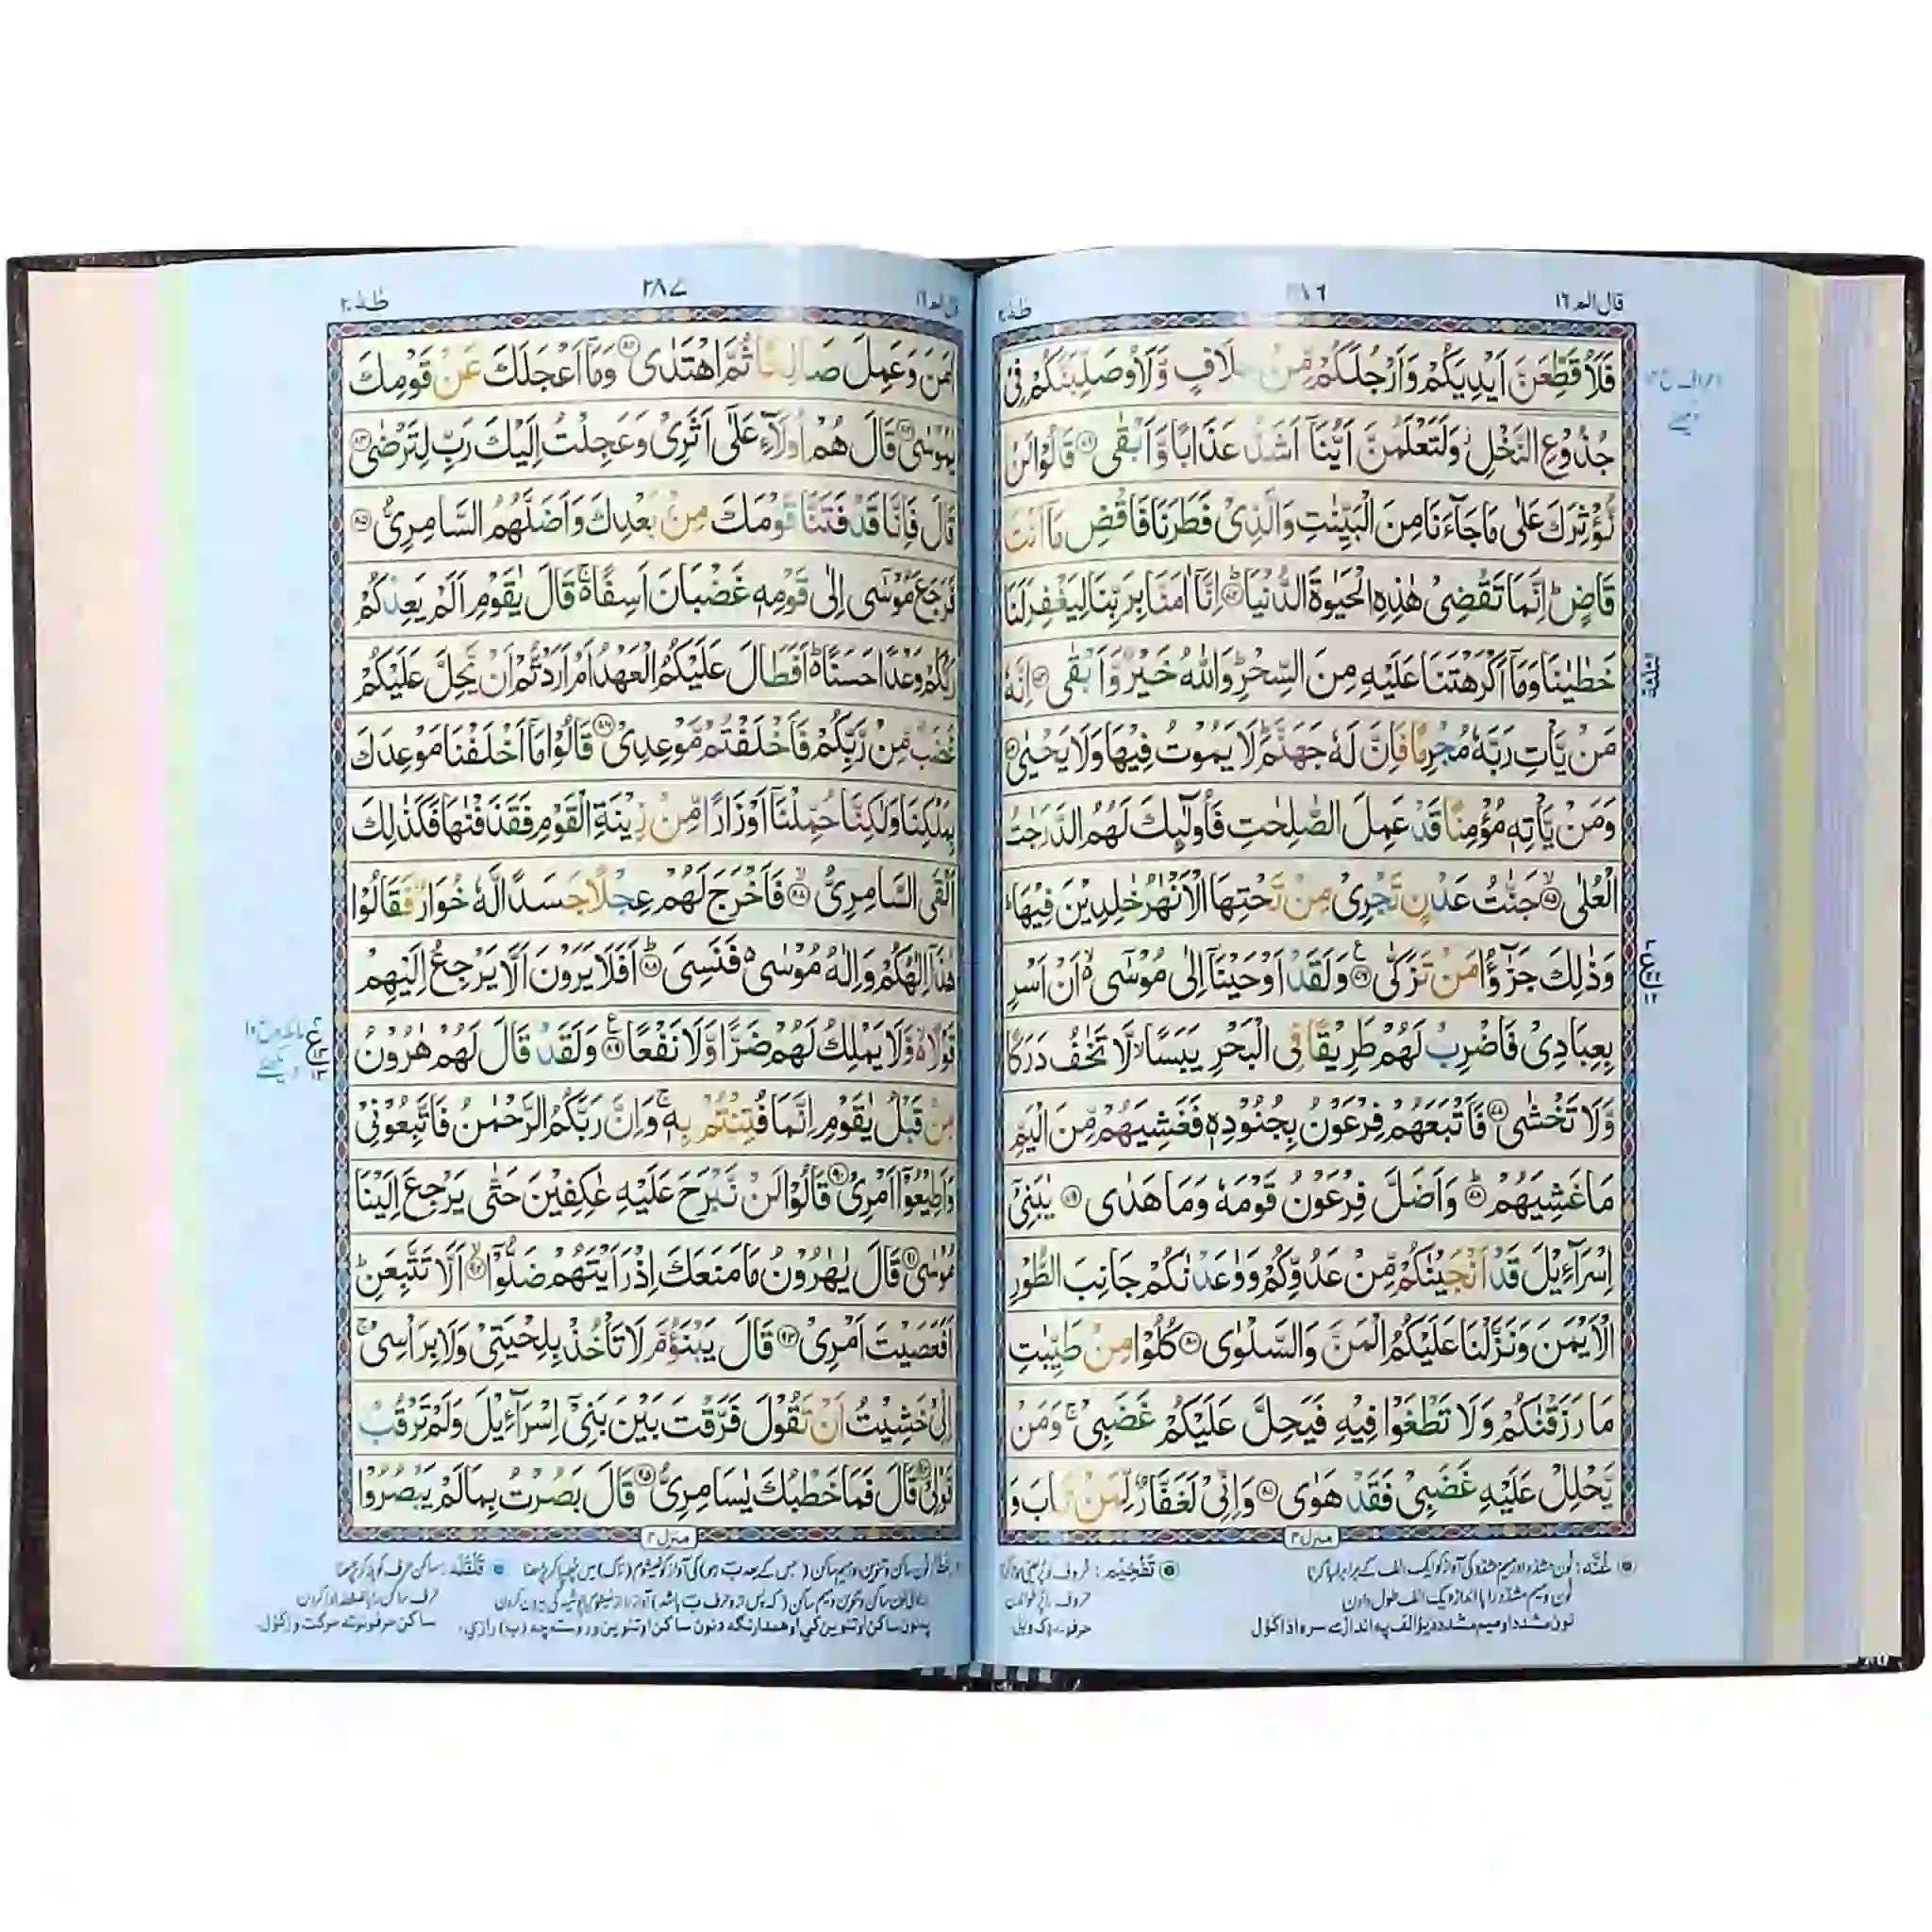 قال الم ١٦
٢٨٦
طٰهٰ ٢٠
فَلَاُقَطِّعَنَّ اَيْدِيَكُمْ وَاَرْجُلَكُمْ مِّنْ خِلَافٍ وَّلَاُوصَلِّبَنَّكُمْ فِيْ
جُذُوْعِ النَّخْلِ وَلَتَعْلَمُنَّ اَيُّنَاۤ اَشَدُّ عَذَابًا وَّاَبْقٰى ۝٧١ قَالُوْا لَنْ
نُّؤْثِرَكَ عَلٰى مَا جَآءَنَا مِنَ الْبَيِّنٰتِ وَالَّذِيْ فَطَرَنَا فَاقْضِ مَاۤ اَنْتَ
قَاضٍ ؕ اِنَّمَا تَقْضِيْ هٰذِهِ الْحَيٰوةَ الدُّنْيَا ؕ۝٧٢ اِنَّاۤ اٰمَنَّا بِرَبِّنَا لِيَغْفِرَ لَنَا
خَطٰيٰنَا وَمَاۤ اَكْرَهْتَنَا عَلَيْهِ مِنَ السِّحْرِ ؕ وَاللّٰهُ خَيْرٌ وَّاَبْقٰى ۝٧٣ اِنَّهٗ
مَنْ يَّاْتِ رَبَّهٗ مُجْرِمًا فَاِنَّ لَهٗ جَهَنَّمَ ؕ لَا يَمُوْتُ فِيْهَا وَلَا يَحْيٰى ۝٧٤
وَمَنْ يَّاْتِهٖ مُؤْمِنًا قَدْ عَمِلَ الصّٰلِحٰتِ فَاُولٰٓئِكَ لَهُمُ الدَّرَجٰتُ
الْعُلٰى ۝٧٥ جَنّٰتُ عَدْنٍ تَجْرِيْ مِنْ تَحْتِهَا الْاَنْهٰرُ خٰلِدِيْنَ فِيْهَا ؕ
وَذٰلِكَ جَزٰٓؤُا مَنْ تَزَكّٰى ۝٧٦ وَلَقَدْ اَوْحَيْنَاۤ اِلٰى مُوْسٰۤى ۙ اَنْ اَسْرِ
بِعِبَادِيْ فَاضْرِبْ لَهُمْ طَرِيْقًا فِي الْبَحْرِ يَبَسًا ۙ لَّا تَخٰفُ دَرَكًا
وَّلَا تَخْشٰى ۝٧٧ فَاَتْبَعَهُمْ فِرْعَوْنُ بِجُنُوْدِهٖ فَغَشِيَهُمْ مِّنَ الْيَمِّ
مَا غَشِيَهُمْ ؕ۝٧٨ وَاَضَلَّ فِرْعَوْنُ قَوْمَهٗ وَمَا هَدٰى ۝٧٩ يٰبَنِيْۤ
اِسْرَآءِيْلَ قَدْ اَنْجَيْنٰكُمْ مِّنْ عَدُوِّكُمْ وَوٰعَدْنٰكُمْ جَانِبَ الطُّوْرِ
الْاَيْمَنَ وَنَزَّلْنَا عَلَيْكُمُ الْمَنَّ وَالسَّلْوٰى ۝٨٠ كُلُوْا مِنْ طَيِّبٰتِ
مَا رَزَقْنٰكُمْ وَلَا تَطْغَوْا فِيْهِ فَيَحِلَّ عَلَيْكُمْ غَضَبِيْ ۚ وَمَنْ
يَّحْلِلْ عَلَيْهِ غَضَبِيْ فَقَدْ هَوٰى ۝٨١ وَاِنِّيْ لَغَفَّارٌ لِّمَنْ تَابَ وَ
منزل ٤
غُنَّه: نون مشدد اور میم مشدد کی آواز کو ایک الف کے برابر لمبا کرنا
نون و میم مشدد را باندازه یک الف طول دادن
تَفْخِیْم:
٢٨٧
طٰهٰ ٢٠
اٰمَنَ وَعَمِلَ صَالِحًا ثُمَّ اهْتَدٰى ۝٨٢ وَمَاۤ اَعْجَلَكَ عَنْ قَوْمِكَ
يٰمُوْسٰى ۝٨٣ قَالَ هُمْ اُولَآءِ عَلٰۤى اَثَرِيْ وَعَجِلْتُ اِلَيْكَ رَبِّ لِتَرْضٰى ۝٨٤
قَالَ فَاِنَّا قَدْ فَتَنَّا قَوْمَكَ مِنْ بَعْدِكَ وَاَضَلَّهُمُ السَّامِرِيُّ ۝٨٥
فَرَجَعَ مُوْسٰۤى اِلٰى قَوْمِهٖ غَضْبَانَ اَسِفًا ۚ قَالَ يٰقَوْمِ اَلَمْ يَعِدْكُمْ
رَبُّكُمْ وَعْدًا حَسَنًا ؕ اَفَطَالَ عَلَيْكُمُ الْعَهْدُ اَمْ اَرَدْتُّمْ اَنْ يَّحِلَّ عَلَيْكُمْ
غَضَبٌ مِّنْ رَّبِّكُمْ فَاَخْلَفْتُمْ مَّوْعِدِيْ ۝٨٦ قَالُوْا مَاۤ اَخْلَفْنَا مَوْعِدَكَ
بِمَلْكِنَا وَلٰكِنَّا حُمِّلْنَاۤ اَوْزَارًا مِّنْ زِيْنَةِ الْقَوْمِ فَقَذَفْنٰهَا فَكَذٰلِكَ
اَلْقَى السَّامِرِيُّ ۙ۝٨٧ فَاَخْرَجَ لَهُمْ عِجْلًا جَسَدًا لَّهٗ خُوَارٌ فَقَالُوْا
هٰذَاۤ اِلٰهُكُمْ وَاِلٰهُ مُوْسٰى ۥ فَنَسِيَ ؕ۝٨٨ اَفَلَا يَرَوْنَ اَلَّا يَرْجِعُ اِلَيْهِمْ
قَوْلًا ۥ وَّلَا يَمْلِكُ لَهُمْ ضَرًّا وَّلَا نَفْعًا ۝٨٩ وَلَقَدْ قَالَ لَهُمْ هٰرُوْنُ
مِنْ قَبْلُ يٰقَوْمِ اِنَّمَا فُتِنْتُمْ بِهٖ ۚ وَاِنَّ رَبَّكُمُ الرَّحْمٰنُ فَاتَّبِعُوْنِيْ
وَاَطِيْعُوْۤا اَمْرِيْ ۝٩٠ قَالُوْا لَنْ نَّبْرَحَ عَلَيْهِ عٰكِفِيْنَ حَتّٰى يَرْجِعَ اِلَيْنَا
مُوْسٰى ۝٩١ قَالَ يٰهٰرُوْنُ مَا مَنَعَكَ اِذْ رَاَيْتَهُمْ ضَلُّوْۤا ۙ۝٩٢ اَلَّا تَتَّبِعَنِ ؕ
اَفَعَصَيْتَ اَمْرِيْ ۝٩٣ قَالَ يَبْنَؤُمَّ لَا تَاْخُذْ بِلِحْيَتِيْ وَلَا بِرَاْسِيْ ۚ
اِنِّيْ خَشِيْتُ اَنْ تَقُوْلَ فَرَّقْتَ بَيْنَ بَنِيْۤ اِسْرَآءِيْلَ وَلَمْ تَرْقُبْ
قَوْلِيْ ۝٩٤ قَالَ فَمَا خَطْبُكَ يٰسَامِرِيُّ ۝٩٥ قَالَ بَصُرْتُ بِمَا لَمْ يَبْصُرُوْا
منزل ٤
قَلْقَلَه: ساکن حرف کو ہلا کر پڑھنا